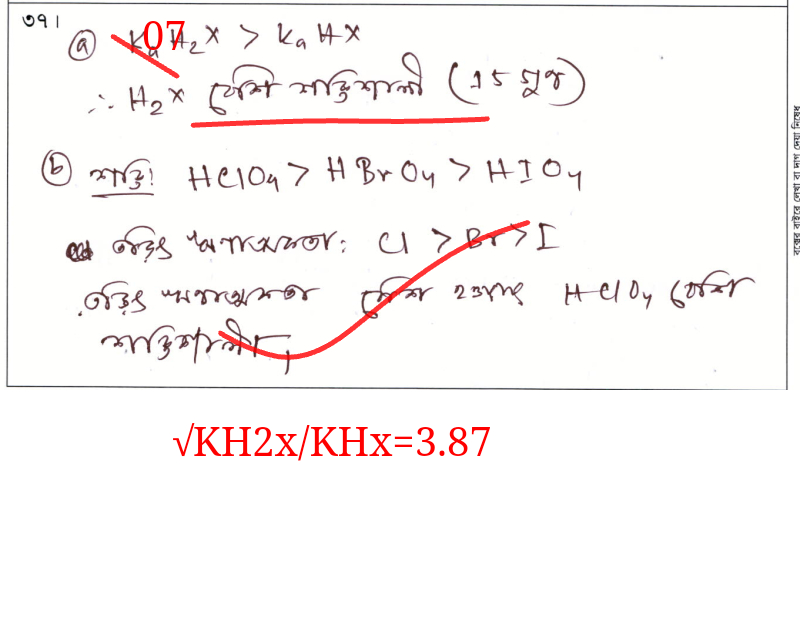 ৩৭।
07
ⓐ Ka H2X > Ka HX
∴ H2X বেশি শক্তিশালী (15 গুন)
ⓑ শক্তি: HClO4 > HBrO4 > HIO4
তড়িৎ ঋণাত্মকতা: Cl > Br > I
তড়িৎ ঋণাত্মকতা বেশি হওয়ায় HClO4 বেশি
শক্তিশালী।
√KH2x/KHx=3.87
বক্সের বাইরে লেখা বা দাগ দেয়া নিষেধ